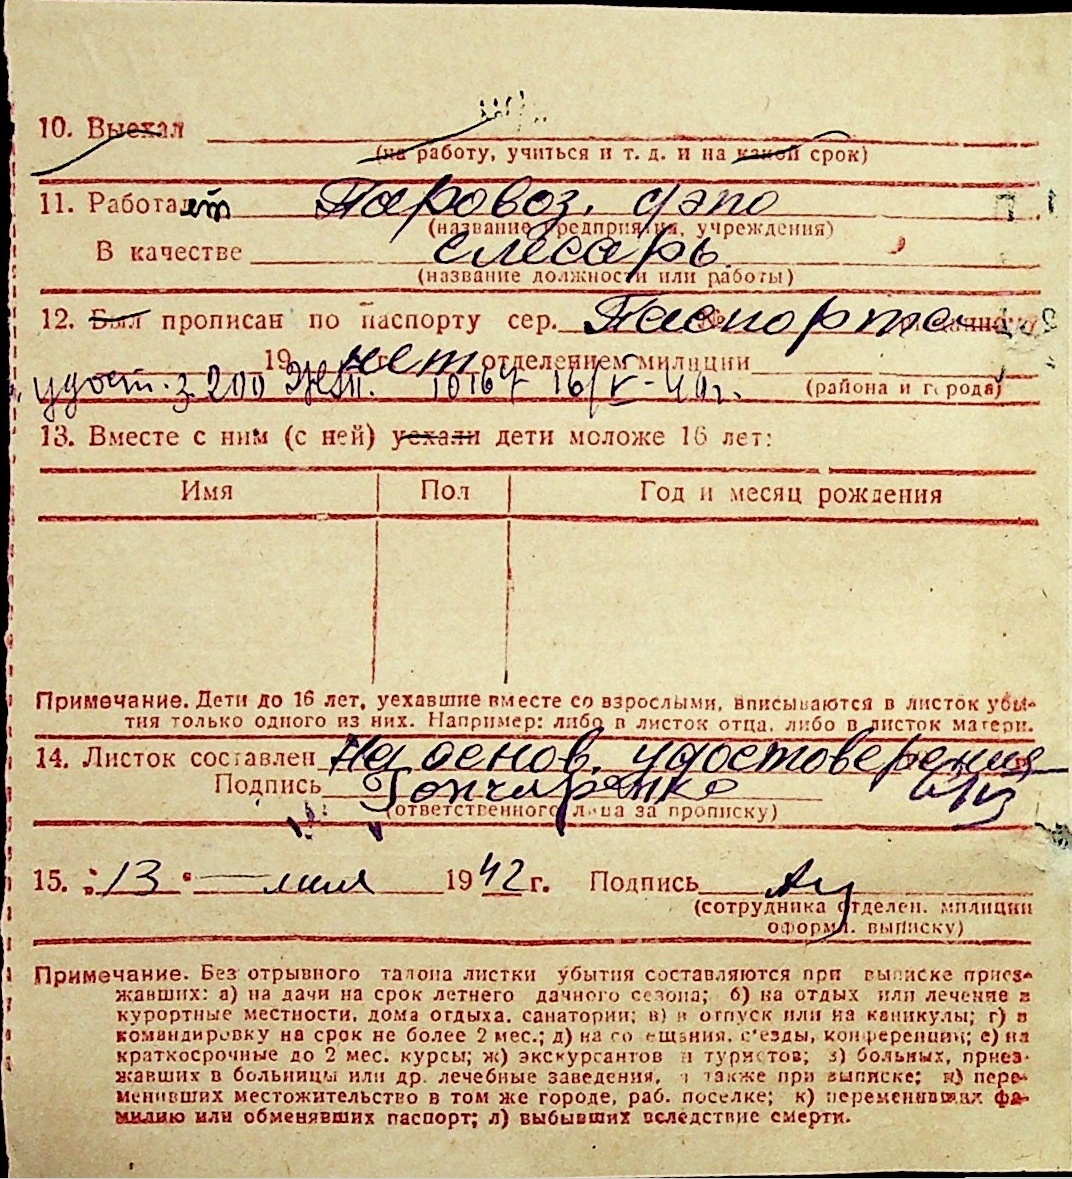 10. Выехал
(на работу, учиться и т. д. и на какой срок)
11. Работает Паровоз. дэпо
(название предприятия, учреждения)
В качестве слесарь
(название должности или работы)
12. Был прописан по паспорту сер. Паспорта №
19 г. нет отделением милиции
удост. 200 10167 16/V-40г. (района и города)
13. Вместе с ним (с ней) уехали дети моложе 16 лет:
Имя Пол Год и месяц рождения
Примечание. Дети до 16 лет, уехавшие вместе со взрослыми, вписываются в листок убы-
тия только одного из них. Например: либо в листок отца, либо в листок матери.
14. Листок составлен На основ. удостоверения
Подпись Гончаренко
(ответственного лица за прописку)
15. „13“ мая 1942 г. Подпись
(сотрудника отделен. милиции
оформ. выписку)
Примечание. Без отрывного талона листки убытия составляются при выписке приез-
жавших: а) на дачи на срок летнего дачного сезона; б) на отдых или лечение в
курортные местности, дома отдыха, санатории; в) в отпуск или на каникулы; г) в
командировку на срок не более 2 мес.; д) на совещания, с'езды, конференции; е) на
краткосрочные до 2 мес. курсы; ж) экскурсантов и туристов; з) больных, приез-
жавших в больницы или др. лечебные заведения, а также при выписке; и) пере-
менивших местожительство в том же городе, раб. поселке; к) переменивших фа-
милию или обменявших паспорт; л) выбывших вследствие смерти.